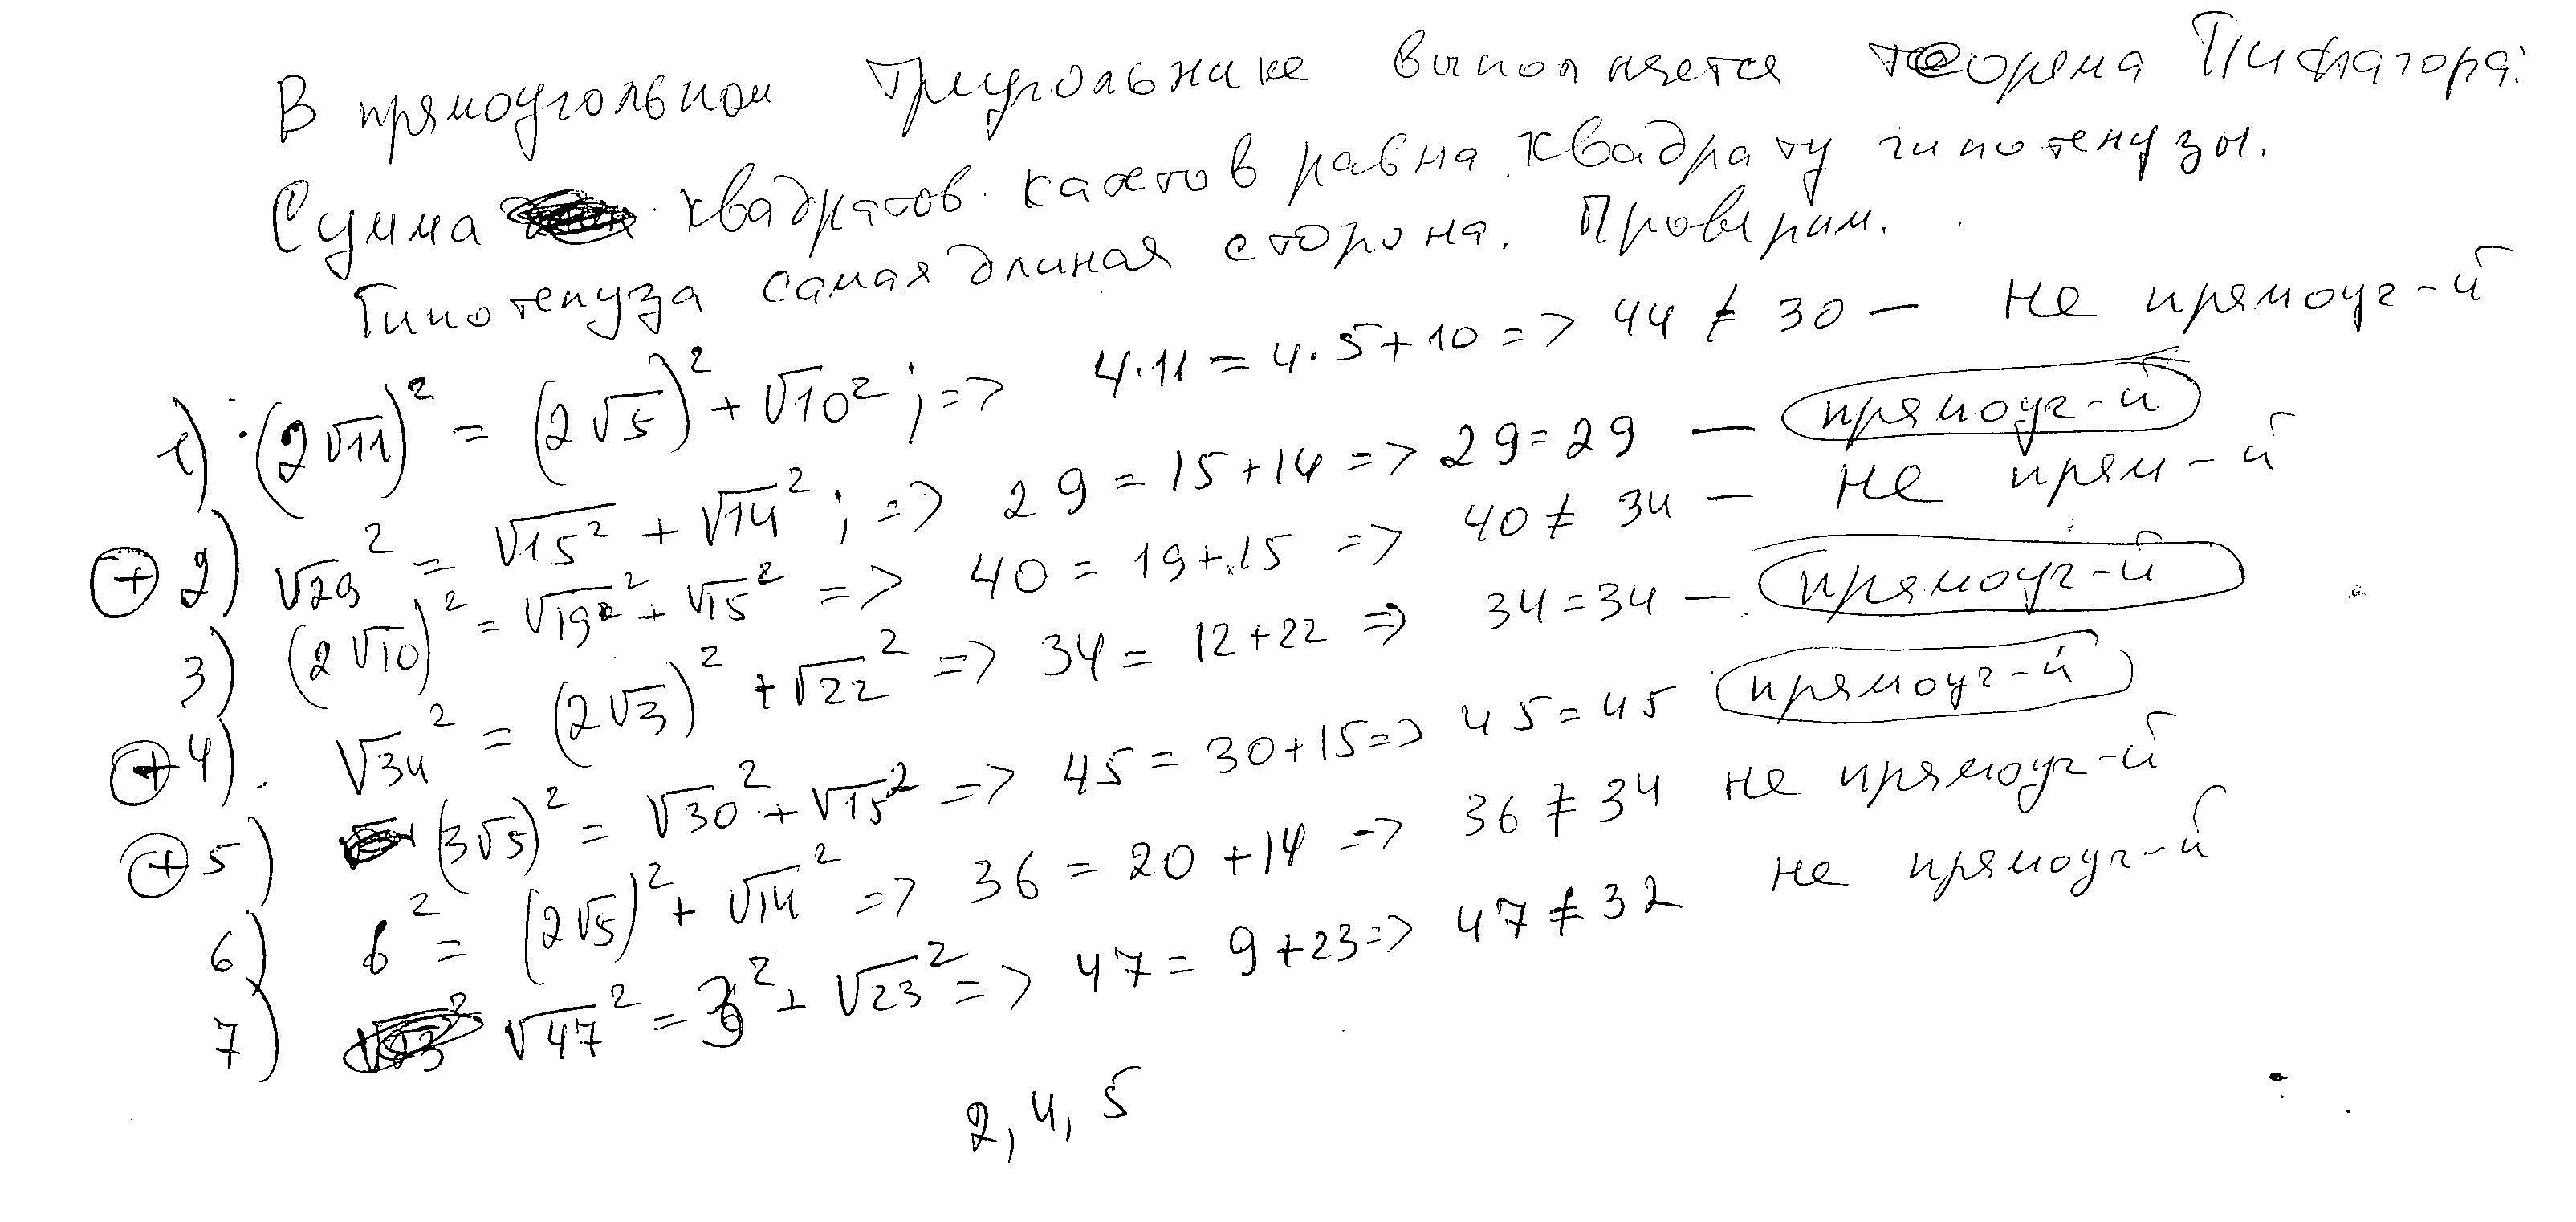 В прямоугольном треугольнике выполняется теорема Пифагора:
Сумма квадратов катетов равна квадрату гипотенузы.
Гипотенуза самая длиная сторона. Проверим.
1) (2√11)² = (2√5)² + √10² ; => 4·11 = 4·5+10 => 44 ≠ 30 — не прямоуг-й
+ 2) √29² = √15² + √14² ; => 29 = 15+14 => 29=29 — прямоуг-й
3) (2√10)² = √19² + √15² => 40 = 19+15 => 40 ≠ 34 — не прям-й
+ 4) √34² = (2√3)² + √22² => 34 = 12+22 => 34=34 — прямоуг-й
+ 5) (3√5)² = √30² + √15² => 45 = 30+15 => 45=45 прямоуг-й
6) 6² = (2√5)² + √14² => 36 = 20+14 => 36 ≠ 34 не прямоуг-й
7) √47² = 3² + √23² => 47 = 9+23 => 47 ≠ 32 не прямоуг-й
2, 4, 5